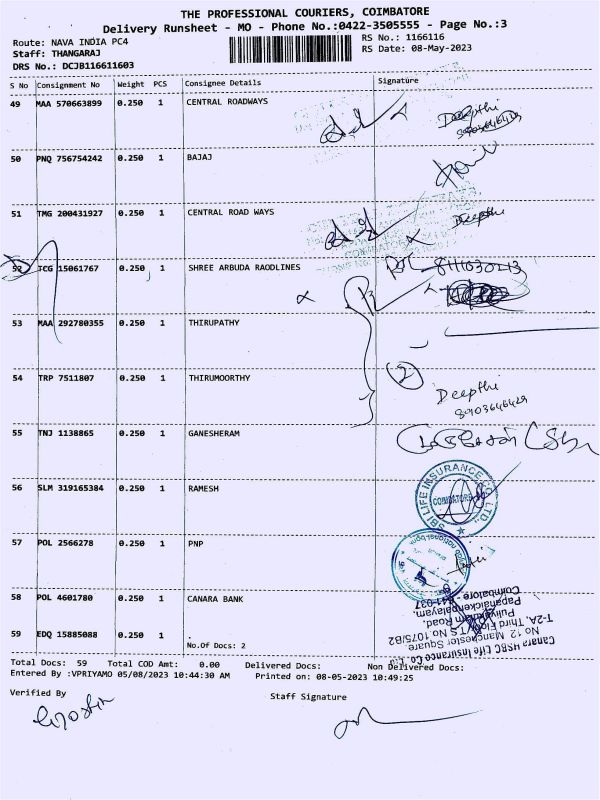 THE PROFESSIONAL COURIERS, COIMBATORE
Delivery Runsheet - MO - Phone No.:0422-3505555 - Page No.:3
Route: NAVA INDIA PC4
RS No.: 1166116
Staff: THANGARAJ
RS Date: 08-May-2023
DRS No.: DCJB116611603
S No Consignment No Weight PCS Consignee Details Signature
49 MAA 570663899 0.250 1 CENTRAL ROADWAYS
Deepthi
50 PNQ 756754242 0.250 1 BAJAJ
51 TMG 200431927 0.250 1 CENTRAL ROAD WAYS Deepthi
52 TCG 15061767 0.250 1 SHREE ARBUDA RAODLINES
53 MAA 292780355 0.250 1 THIRUPATHY
54 TRP 7511807 0.250 1 THIRUMOORTHY
2
Deepthi
8903646429
55 TNJ 1138865 0.250 1 GANESHERAM
56 SLM 319165384 0.250 1 RAMESH
SBI LIFE INSURANCE CO. LTD.,
COIMBATORE
57 POL 2566278 0.250 1 PNP
58 POL 4601780 0.250 1 CANARA BANK
59 EDQ 15885088 0.250 1 .
No.Of Docs: 2
Canara HSBC Life Insurance Co. Ltd
No 12, Manchester Square
T-2A, Third Floor, T S No.1075/B2
Puliyakulam Road,
Papanaickenpalayam,
Coimbatore - 641-037
Total Docs: 59 Total COD Amt: 0.00 Delivered Docs: Non Delivered Docs:
Entered By :VPRIYAMO 05/08/2023 10:44:30 AM Printed on: 08-05-2023 10:49:25
Verified By
Staff Signature